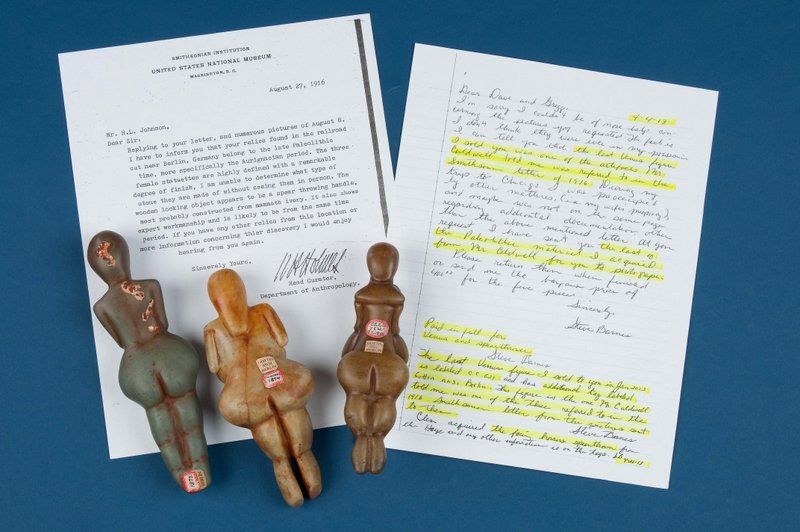 SMITHSONIAN INSTITUTION
UNITED STATES NATIONAL MUSEUM
WASHINGTON, D. C.
August 27, 1916
Mr. H.L. Johnson,
Dear Sir:
Replying to your letter, and numerous pictures of August 8.
I have to inform you that your relics found in the railroad
cut near Berlin, Germany belong to the late Paleolithic
time, more specifically the Aurignacian period. The three
female statuettes are highly defined with a remarkable
degree of finish, I am unable to determine what type of
stone they are made of without seeing them in person. The
wooden looking object appears to be a spear throwing handle,
most probably constructed from mammoth ivory. It also shows
expert workmanship and is likely to be from the same time
period. If you have any other relics from this location or
more information concerning thier discovery I would enjoy
hearing from you again.
Sincerely Yours,
Head Curator,
Department of Anthropology.
4-4-13
Dear Dave and Gregg,
I'm sorry I couldn't be of more help con-
cerning the pictures you requested. The fact is
I don't think they were ever in my possession
I can tell you that the last Venus figure
I sold you was one of the artifacts Mr.
Caldwell told me was refered to in the
Smithsonian letter of 1916. During my
trip to Chicago I was preoccupied
by other matters,
and maybe was not on the same page
regarding additional documentation other
than the above mentioned letter. At your
request I have sent you the last of
the Paleolithic material I acquired
from Mr Caldwell for you to photograph.
Please return them when finished
or send me the bargain price of
for the five pieces.
Sincerely,
Steve Barnes
Paid in full for
Venus and spearthrower
Steve Barnes
The last Venus figure I sold to you in
is labeled and has additional tag labeled
Berlin. The figure is the one Mr. Caldwell
told me was one of the three refered to in the
1916 Smithsonian letter from the pictures sent
to them.
Steve Barnes
Clem acquired the four bone from
the Hoge and any other information is on the tags.